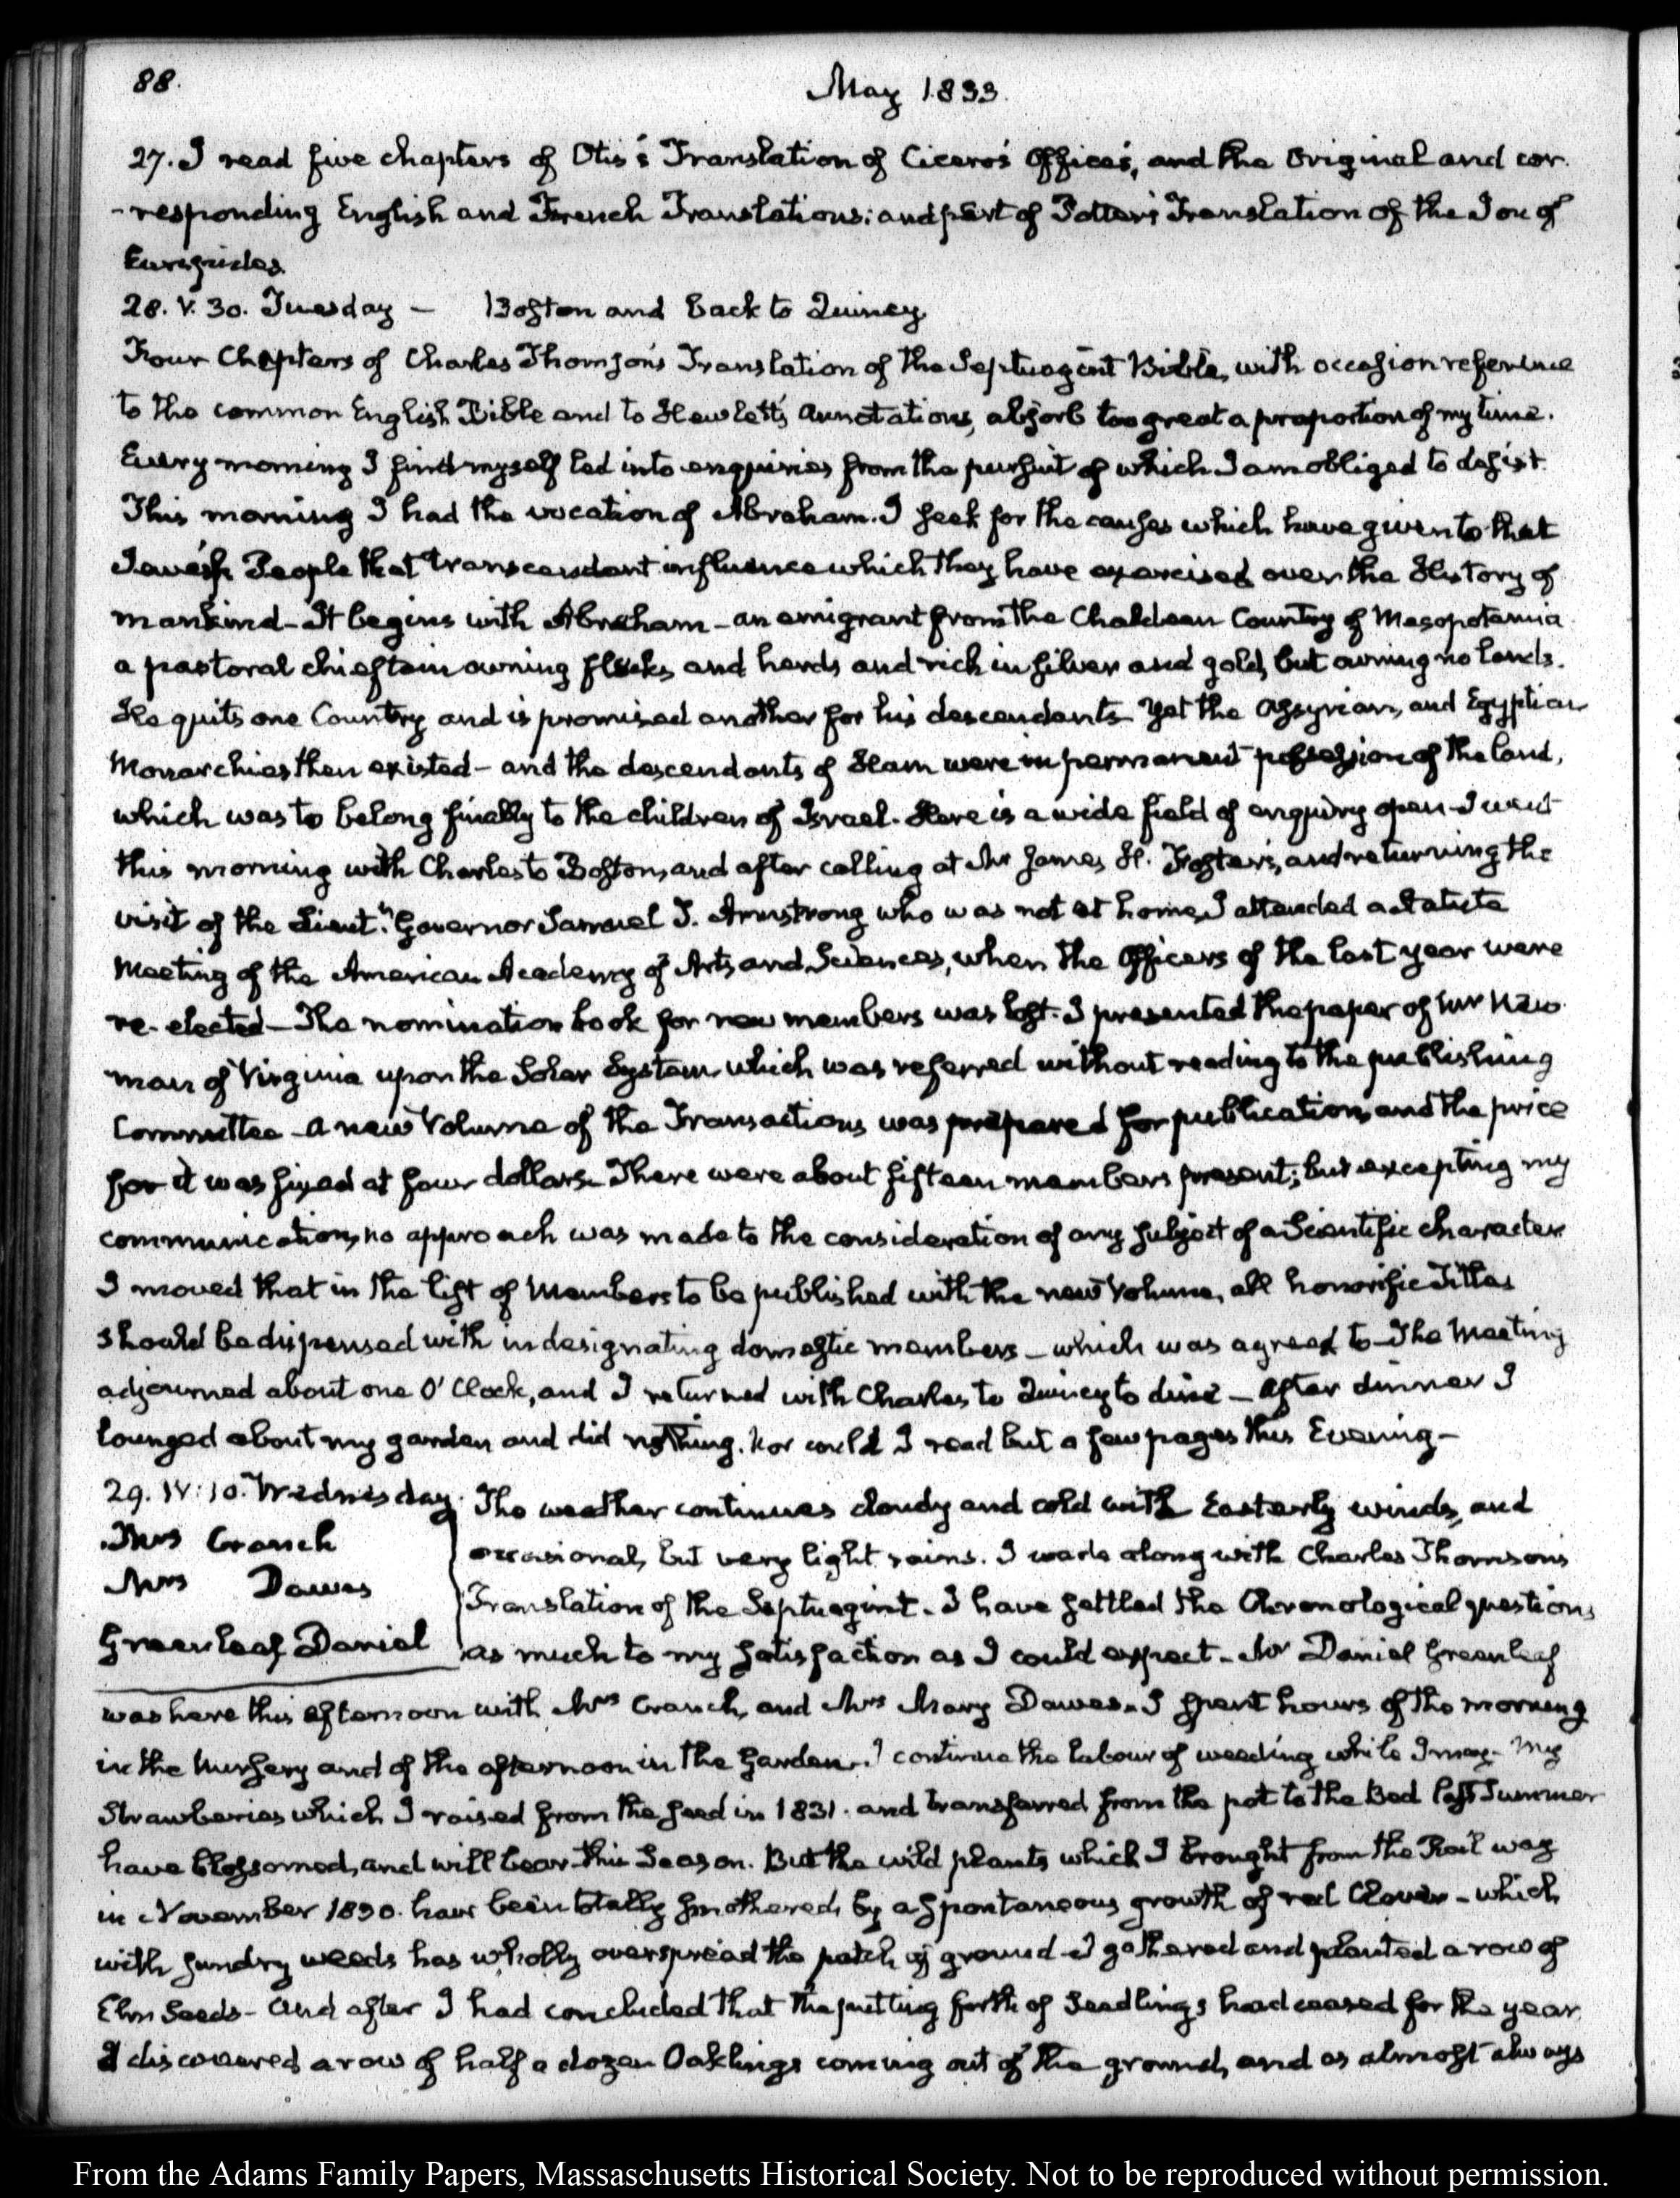 88.
May 1833.
27. I read five chapters of Otis's Translation of Cicero's Offices, and the Original and cor-
-responding English and French Translations: and part of Potter's Translation of the Ion of
Euripides.
28. V. 30. Tuesday — Boston and back to Quincy.
Four Chapters of Charles Thomson's Translation of the Septuagint Bible, with occasion reference
to the common English Bible and to Hewlett's Annotations, absorb too great a proportion of my time.
Every morning I find myself led into enquiries from the pursuit of which I am obliged to desist.
This morning I had the vocation of Abraham. I seek for the causes which have given to that
Jewish People that transcendant influence which they have exercised over the History of
mankind - It begins with Abraham - an emigrant from the Chaldean Country of Mesopotamia
a pastoral chieftain owning flocks and herds and rich in silver and gold, but owning no lands.
He quits one Country and is promised another for his descendants. Yet the Assyrian, and Egyptian
Monarchies then existed - and the descendants of Ham were in permanent possession of the land,
which was to belong finally to the children of Israel. Here is a wide field of enquiry open - I went
this morning with Charles to Boston, and after calling at Mr James H. Foster's, and returning the
visit of the Lieut.t Governor Samuel T. Armstrong who was not at home, I attended a statute
Meeting of the American Academy of Arts and Sciences, when the Officers of the last year were
re-elected - The nomination book for new members was lost. I presented the paper of Mr New-
man of Virginia upon the Solar System which was referred without reading to the publishing
Committee - A new Volume of the Transactions was prepared for publication, and the price
for it was fixed at four dollars. There were about fifteen members present; but excepting my
communication, no approach was made to the consideration of any subject of a Scientific character
I moved that in the list of Members to be published with the new Volume, all honorific Titles
should be dispensed with in designating domestic members - which was agreed to - The Meeting
adjourned about one O'Clock, and I returned with Charles to Quincy to dine - After dinner I
lounged about my garden and did nothing. Nor could I read but a few pages this Evening -
29. IV: 10. Wednesday. The weather continues cloudy and cold with Easterly winds, and
Mrs Cranch occasional, but very light rains. I wade along with Charles Thomson's
Mrs Dawes Translation of the Septuagint. I have settled the Chronological questions
Greenleaf Daniel as much to my satisfaction as I could expect. Mr Daniel Greenleaf
was here this afternoon with Mrs Cranch, and Mrs Mary Dawes. I spent hours of the morning
in the Nursery and of the afternoon in the Garden. I continue the labour of weeding while I may - My
Strawberies which I raised from the seed in 1831. and transferred from the pot to the Bed last Summer
have blossomed, and will bear this Season. But the wild plants which I brought from the Rail way
in November 1830. have been totally smothered, by a spontaneous growth of red Clover - which
with sundry weeds has wholly overspread the patch of ground - I gathered and planted a row of
Elm Seeds - And after I had concluded that the putting forth of Seedlings had ceased for the year,
I discovered a row of half a dozen Oaklings coming out of the ground, and as almost always
From the Adams Family Papers, Massaschusetts Historical Society. Not to be reproduced without permission.